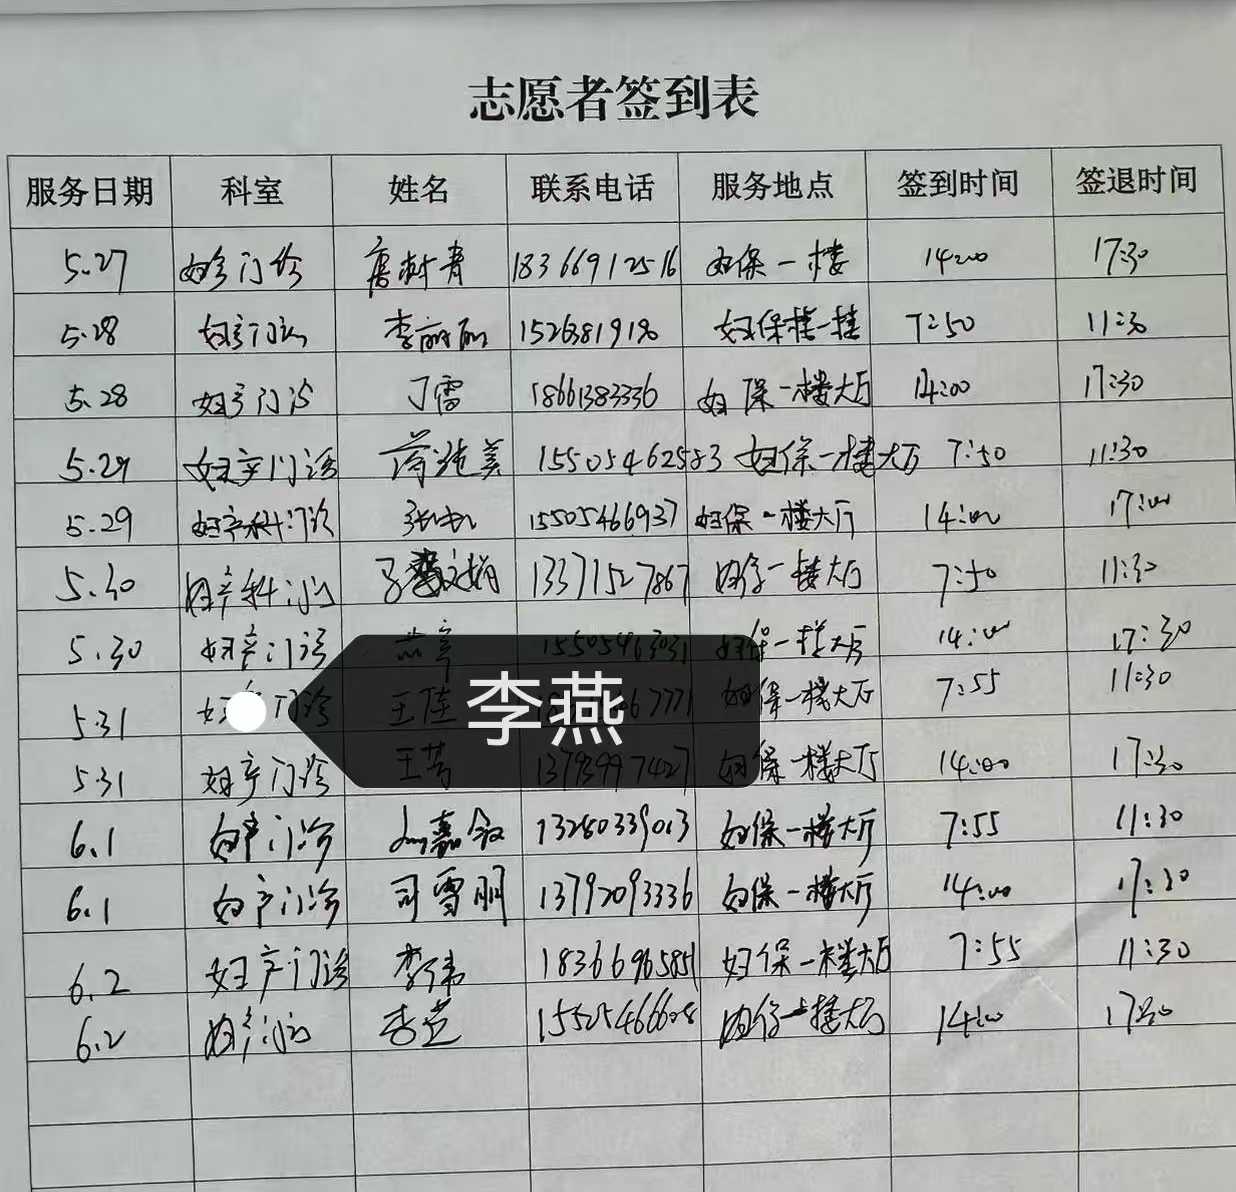 志愿者签到表
服务日期 科室 姓名 联系电话 服务地点 签到时间 签退时间
5.27 妇产门诊 18366912516 妇保一楼 14:00 17:30
5.28 妇产门诊 李丽丽 妇保楼一楼 7:50 11:30
5.28 妇产门诊 丁雪 18661383336 妇保一楼大厅 14:00 17:30
5.29 妇产门诊 15505462583 妇保一楼大厅 7:50 11:30
5.29 妇产科门诊 15505466937 妇保一楼大厅 14:00 17:00
5.30 妇产科门诊 13371527867 妇保一楼大厅 7:50 11:30
5.30 妇产门诊 15505463031 妇保一楼大厅 14:00 17:30
5.31 门诊 王佳 妇保一楼大厅 7:55 11:30
李燕
5.31 妇产门诊 王芳 13793997427 妇保一楼大厅 14:00 17:30
6.1 妇产门诊 13280339013 妇保一楼大厅 7:55 11:30
6.1 妇产门诊 司雪朋 13792093336 妇保一楼大厅 14:00 17:30
6.2 妇产门诊 李伟 18366965851 妇保一楼大厅 7:55 11:30
6.2 妇产门诊 妇保一楼大厅 14:00 17:30